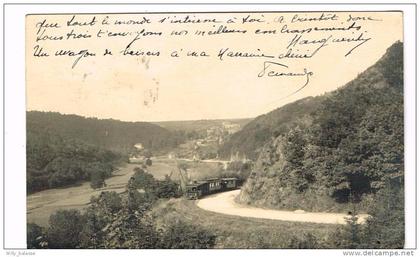 que tout le monde s'intéresse à toi. A bientôt donc
tous trois t'envoyons nos meilleurs embrassements
Marguerite
Un wagon de baisers à ma Marraine chérie
Fernande
www.delcampe.net